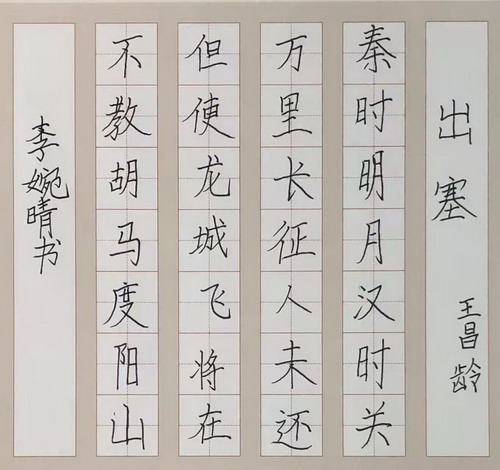 出塞
王昌龄
秦时明月汉时关
万里长征人未还
但使龙城飞将在
不教胡马度阳山
李婉晴书